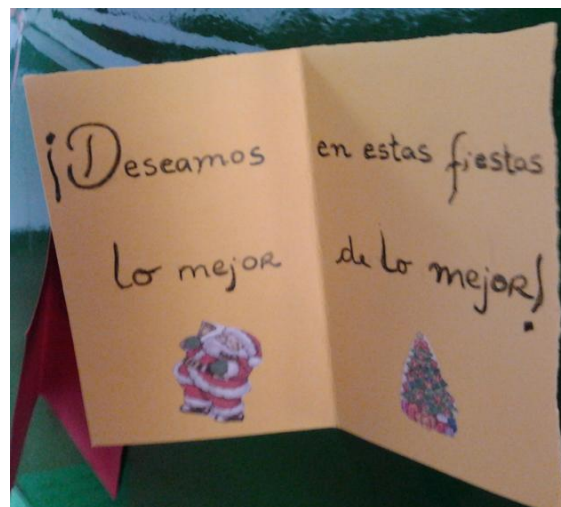 ¡Deseamos en estas fiestas
lo mejor de lo mejor!